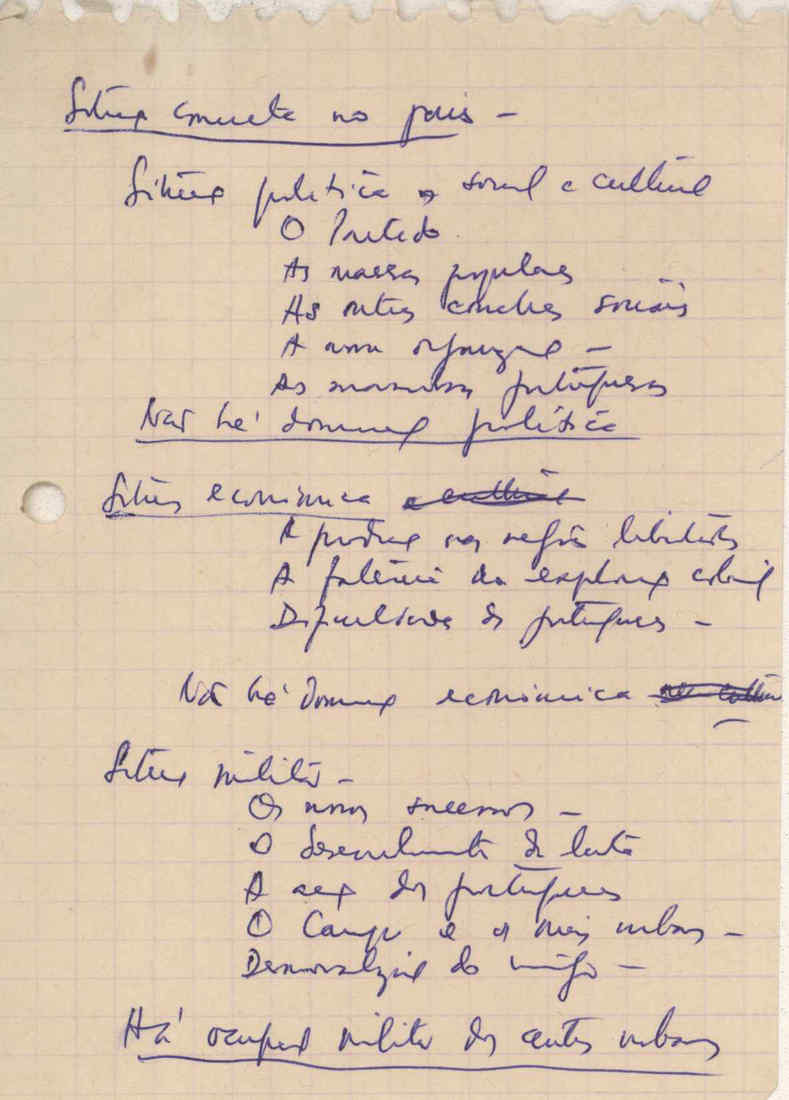 Situação concreta no país –
Situação política, social e cultural
O Partido
As massas populares
As outras camadas sociais
A nova organização –
As manobras portuguesas
Não há domínio político
Situação económica
A produção nas regiões libertadas
A falência da exploração colonial
Dificuldades dos portugueses –
Não há domínio económico
Situação militar –
Os novos sucessos –
O desenvolvimento da luta
A acção dos portugueses
O Campo e os meios urbanos –
Desmoralização do inimigo –
Há ocupação militar dos centros urbanos